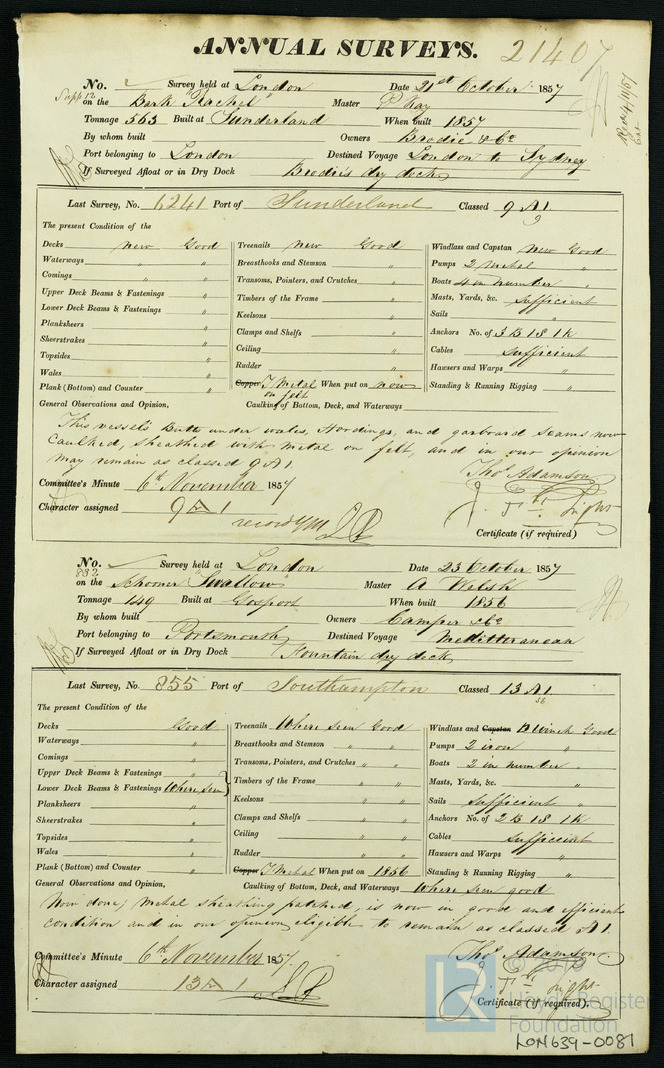 ANNUAL SURVEYS. 21407
No. Survey held at London Date 21st October 1857
Supp 12 on the Bark "Rachel" Master P Kay
Tonnage 563 Built at Sunderland When built 1857
By whom built Owners Brodie & Co
Port belonging to London Destined Voyage London to Sydney
If Surveyed Afloat or in Dry Dock Brodie's dry dock
Last Survey, No. 6241 Port of Sunderland Classed 9 A1.
The present Condition of the
Decks new Good Treenails new Good Windlass and Capstan New Good
Waterways " Breasthooks and Stemson " Pumps 2 metal "
Comings " " Transoms, Pointers, and Crutches " Boats 4 in number "
Upper Deck Beams & Fastenings " Timbers of the Frame " Masts, Yards, &c. Sufficient
Lower Deck Beams & Fastenings " Keelsons " Sails "
Planksheers " Clamps and Shelfs " Anchors No. of 3 B 1 S 1 K
Sheerstrakes " Ceiling " Cables Sufficient
Topsides " Rudder " Hausers and Warps "
Wales " Copper Y Metal When put on now Standing & Running Rigging "
Plank (Bottom) and Counter " on felt
General Observations and Opinion, Caulking of Bottom, Deck, and Waterways
This vessel's Butts under wales, Hoodings, and garboard seams now
caulked, sheathed with metal on felt, and in our opinion
may remain as classed 9 A1.
Thos Adamson
Committee's Minute 6th November 1857
Character assigned 9 A 1
Certificate (if required)
No. Survey held at London Date 23 October 1857
832 on the Schooner "Swallow" Master A Welsh
Tonnage 149 Built at Gosport When built 1856
By whom built Owners Camper & Co
Port belonging to Portsmouth Destined Voyage Mediterranean
If Surveyed Afloat or in Dry Dock Fountain dry dock
Last Survey, No. 855 Port of Southampton Classed 13 A1.
56
The present Condition of the
Decks Good Treenails Where seen Good Windlass and Capstan & Winch Good
Waterways " Breasthooks and Stemson " " Pumps 2 iron "
Comings " Transoms, Pointers, and Crutches " " Boats 2 in number "
Upper Deck Beams & Fastenings " Timbers of the Frame " " Masts, Yards, &c. "
Lower Deck Beams & Fastenings Where seen Keelsons " " Sails Sufficient "
Planksheers " Clamps and Shelfs " " Anchors No. of 2 B 1 S 1 K
Sheerstrakes " Ceiling " " Cables Sufficient
Topsides " Rudder " " Hausers and Warps "
Wales " Copper Y Metal When put on 1856 Standing & Running Rigging "
Plank (Bottom) and Counter "
General Observations and Opinion, Caulking of Bottom, Deck, and Waterways Where seen good
Now done; metal sheathing patched, is now in good and efficient
condition and in our opinion eligible to remain as classed A1.
Thos Adamson
Committee's Minute 6th November 1857
Character assigned 13 A 1
Certificate (if required)
Lloyd's Register
Foundation
LON639-0081